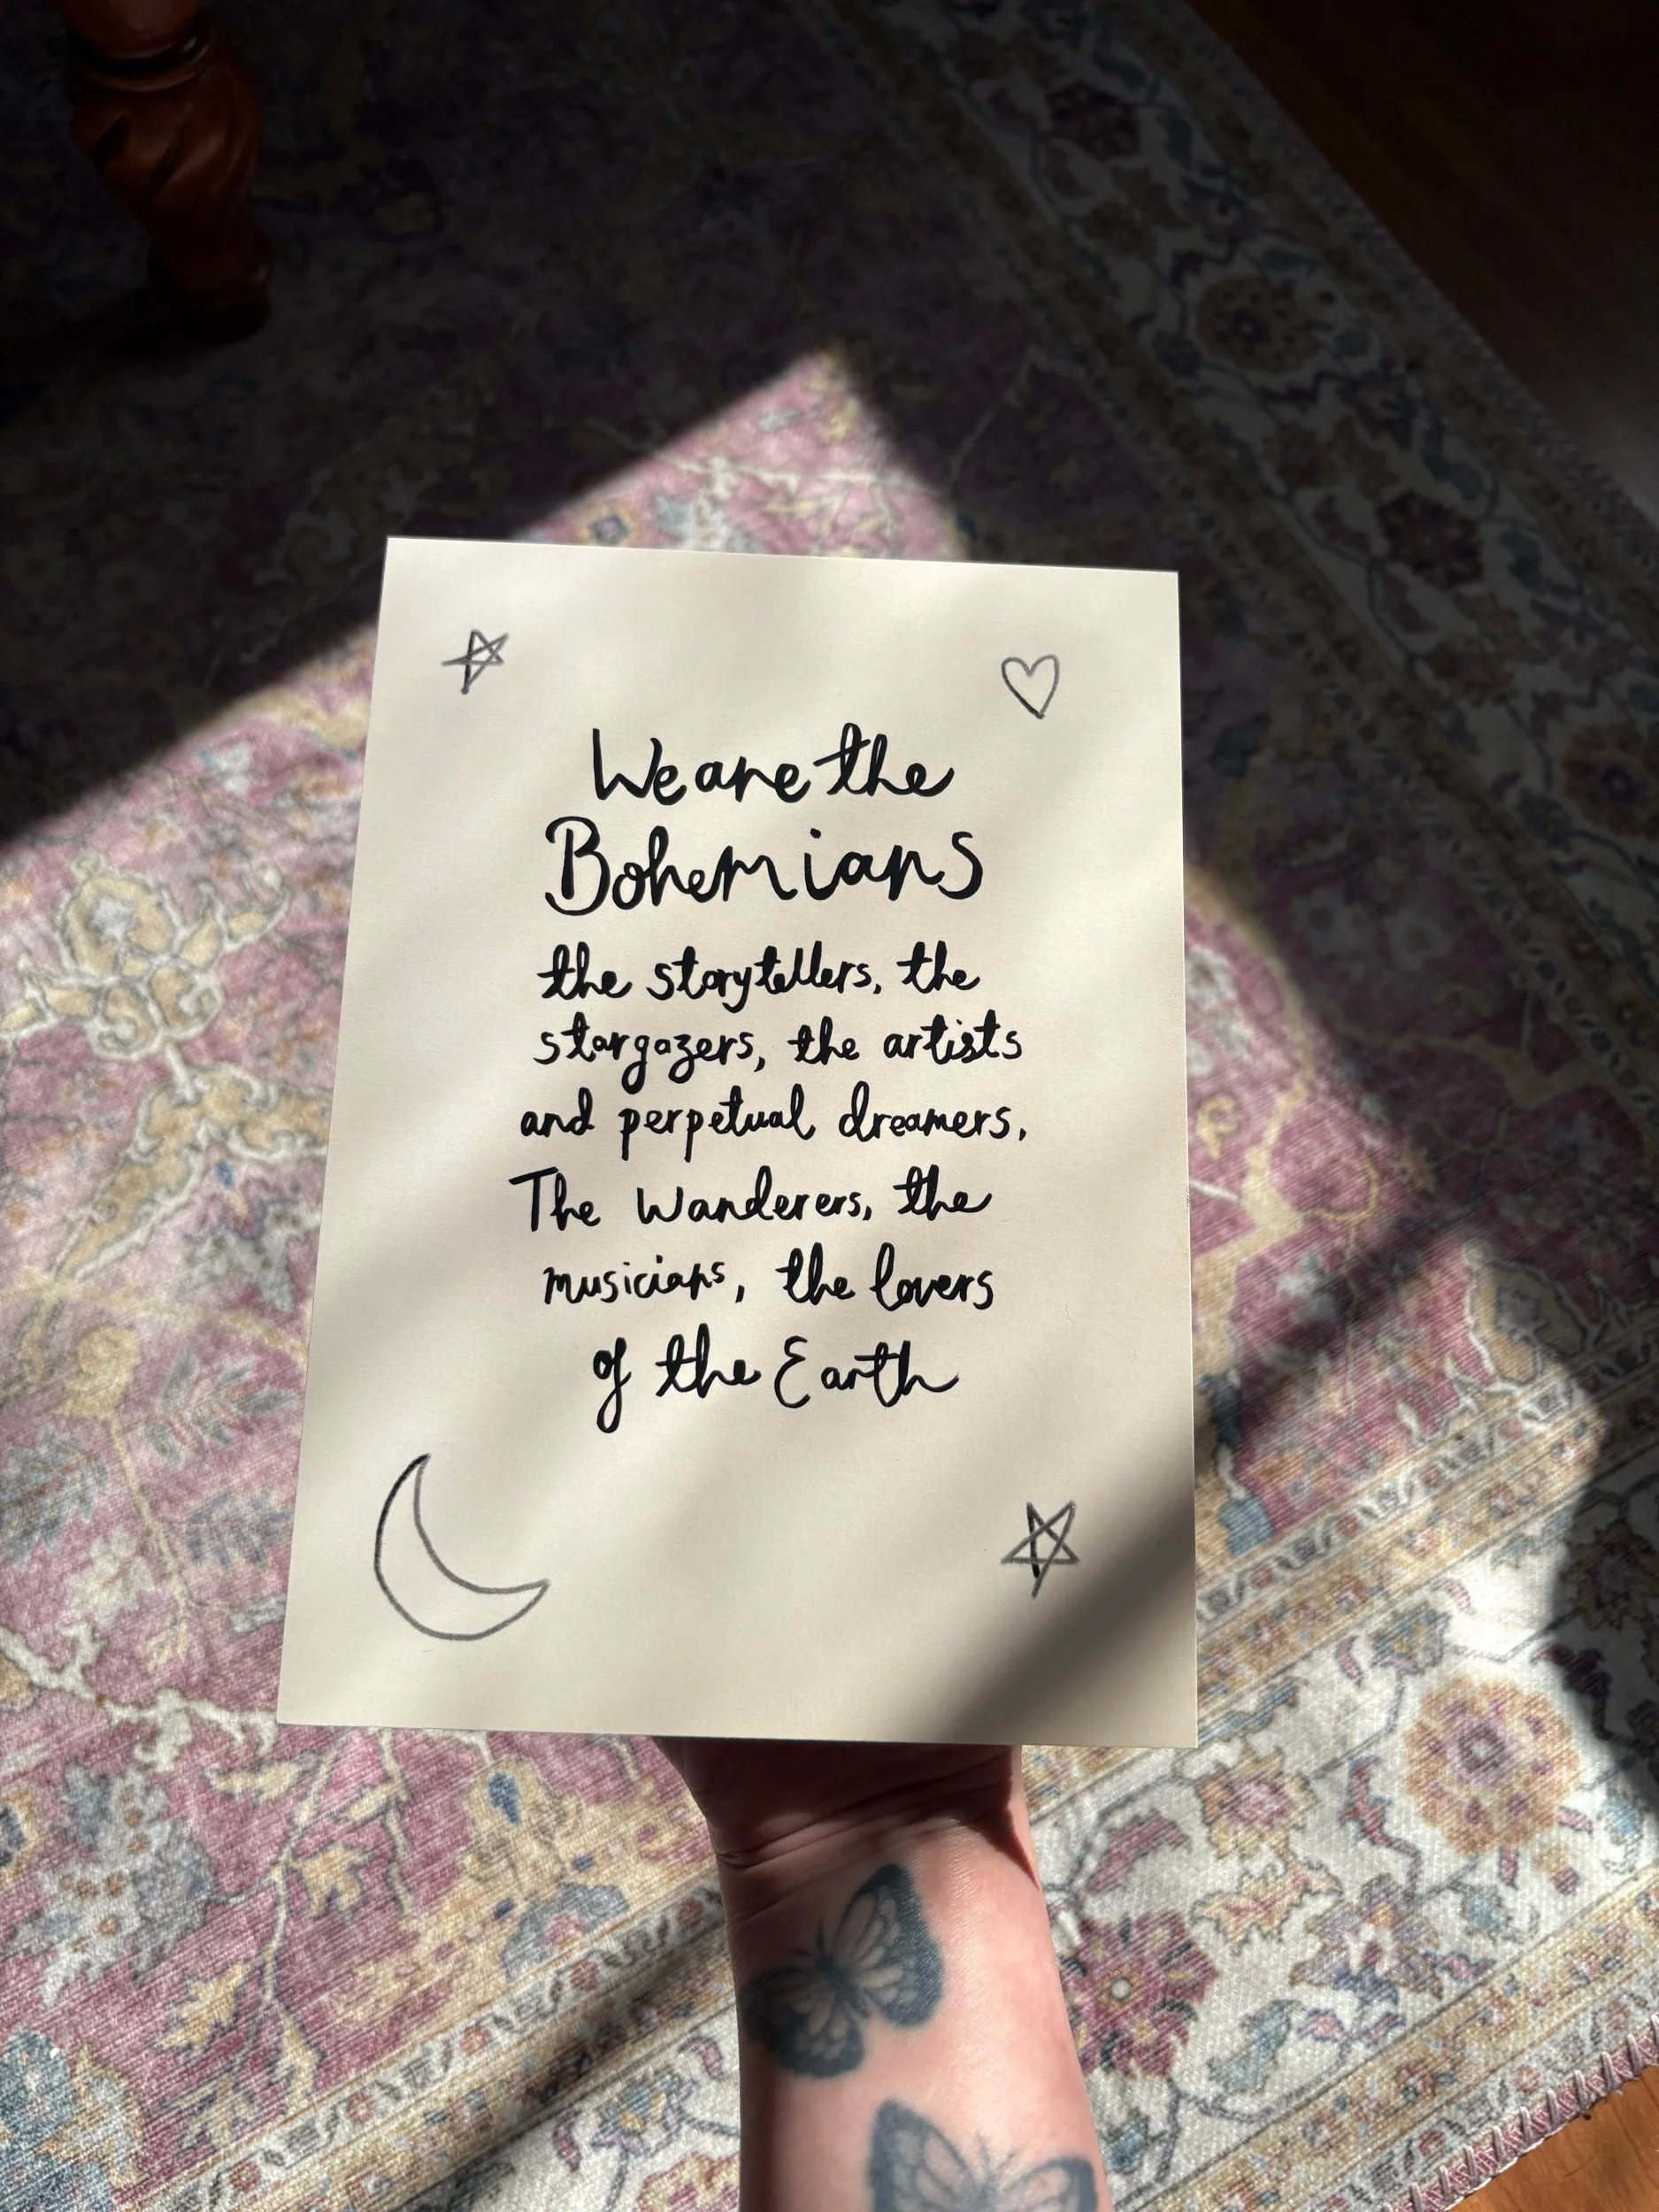 We are the
Bohemians
the storytellers, the
stargazers, the artists
and perpetual dreamers,
The Wanderers, the
musicians, the lovers
of the Earth